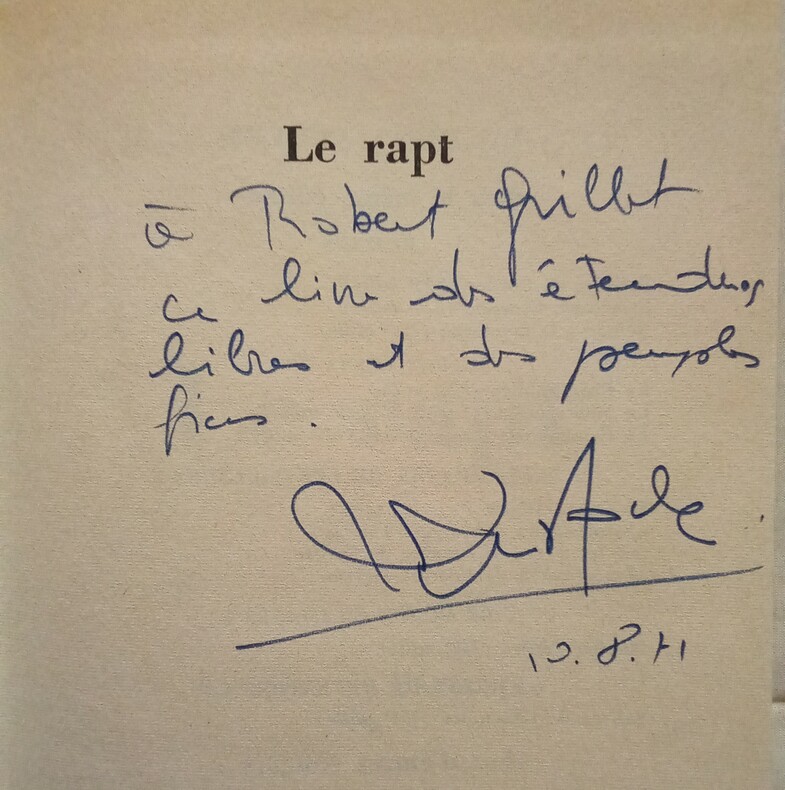 Le rapt
à Robert Grillet
ce livre des étendues
libres et des peuples
fiers.
10.8.71